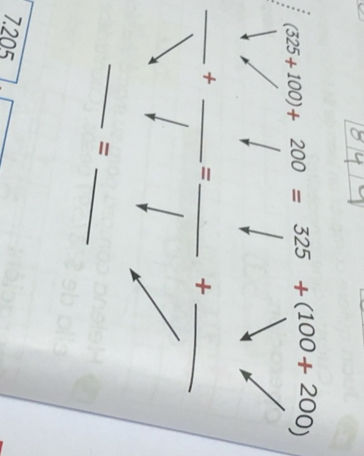 (325 + 100) + 200 = 325 + (100 + 200)
____ + ____ = ____ + ____
____ = ____
7.205